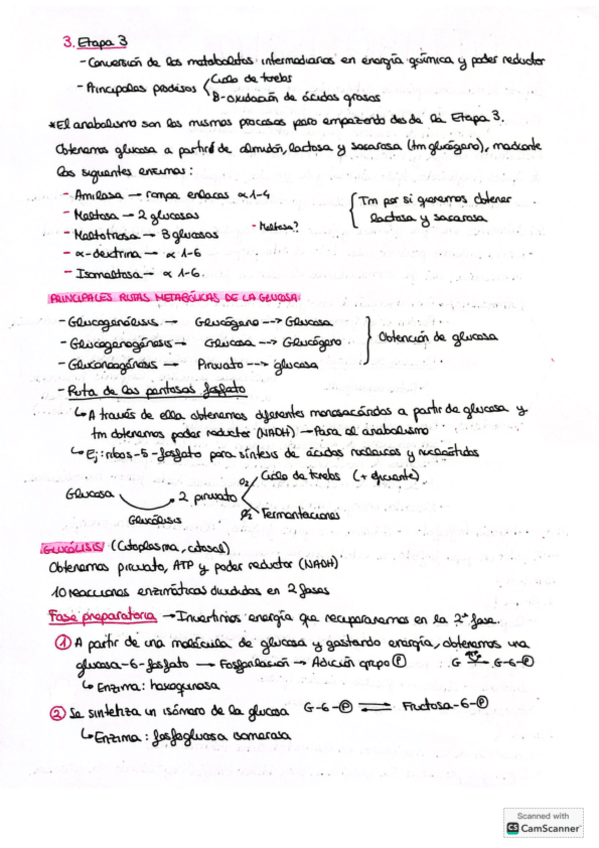 3. Etapa 3
- Conversión de los metabolitos intermediarios en energía química y poder reductor
- Principales procesos
Ciclo de krebs
B-oxidación de ácidos grasos
*El anabolismo son los mismos procesos pero empezando desde la Etapa 3.
Obtenemos glucosa a partir de almidón, lactosa y sacarosa (tm glucógeno), mediante
las siguientes enzimas:
- Amilasa → rompe enlaces α 1-4
- Maltosa → 2 glucosas
- Maltotriosa → 3 glucosas
- Maltasa?
- α-dextrina → α 1-6
- Isomaltosa → α 1-6.
Tm por si queremos obtener
lactosa y sacarosa
PRINCIPALES RUTAS METABÓLICAS DE LA GLUCOSA:
- Glucogenólisis → Glucógeno --> Glucosa
- Glucogenogénesis → Glucosa --> Glucógeno
- Gluconeogénesis → Piruvato --> glucosa
Obtención de glucosa
- Ruta de las pentosas fosfato
↳ A través de ella obtenemos diferentes monosacáridos a partir de glucosa y
tm obtenemos poder reductor (NADH) → Para el anabolismo
↳ Ej: ribos-5-fosfato para síntesis de ácidos nucleicos y nucleótidos
Glucosa → 2 piruvato
Glucólisis
O2 Ciclo de krebs (+ eficiente)
O2 Fermentaciones
GLUCÓLISIS (Citoplasma, citosol)
Obtenemos piruvato, ATP y poder reductor (NADH)
10 reacciones enzimáticas divididas en 2 fases
Fase preparatoria → Invertimos energía que recuperaremos en la 2ª fase.
① A partir de una molécula de glucosa y gastando energía, obtenemos una
glucosa-6-fosfato → Fosforilación → Adición grupo Ⓟ G → G-6-Ⓟ
↳ Enzima: hexoquinasa
② Se sintetiza un isómero de la glucosa G-6-Ⓟ ⇌ Fructosa-6-Ⓟ
↳ Enzima: fosfoglucosa isomerasa
Scanned with
CS CamScanner